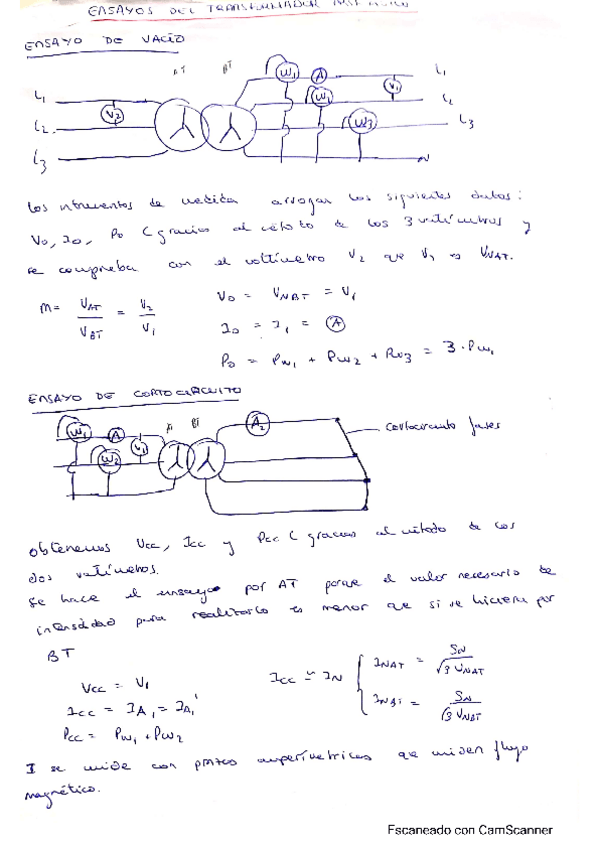 ENSAYOS DEL TRANSFORMADOR
ENSAYO DE VACIO
AT BT
L1 V2 W1 A V1 L1
L2 W1 L2
L3 W3 L3
N
Los intrumentos de medida arrojan los siguientes datos:
V0, I0, P0 (gracias al método de los 3 vatímetros y
se comprueba con el voltímetro V2 que V2 es VNAT.
m = VAT/VBT = V2/V1
V0 = VNBT = V1
I0 = I1 = A
P0 = PW1 + PW2 + PW3 = 3·PW1
ENSAYO DE CORTOCIRCUITO
W1 A V1 A BT A2 cortocircuito fases
W2
obtenemos Vcc, Icc y Pcc (gracias al método de los
dos vatímetros.
Se hace el ensayo por AT porque el valor necesario de
intensidad para realizarlo es menor que si se hiciera por
BT
Vcc = V1
Icc = IA1 = IA1'
Pcc = PW1 + PW2
Icc ≃ IN { INAT = SN/√3 VNAT
INBT = SN/√3 VNBT
I se mide con pinzas amperimétricas que miden flujo
magnético.
Escaneado con CamScanner